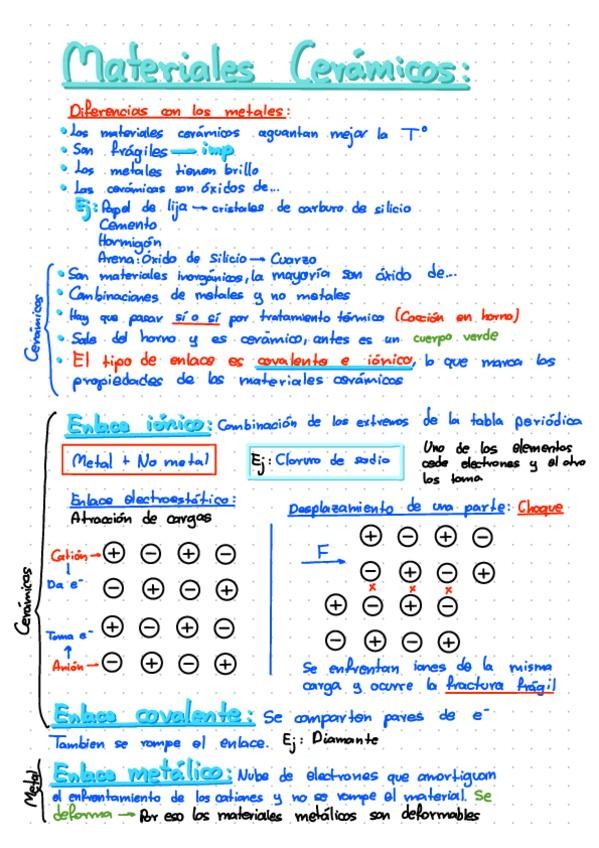 Materiales Cerámicos:
Diferencias con los metales:
• Los materiales cerámicos aguantan mejor la Tº
• Son frágiles — imp
• Los metales tienen brillo
• Las cerámicas son óxidos de...
Ej: Papel de lija → cristales de carburo de silicio
Cemento
Hormigón
Arena: Óxido de silicio → Cuarzo
Cerámicos
• Son materiales inorgánicos, la mayoría son óxido de...
• Combinaciones de metales y no metales
• Hay que pasar sí o sí por tratamiento térmico (Cocción en horno)
• Sale del horno y es cerámico, antes es un cuerpo verde
• El tipo de enlace es covalente e iónico, lo que marca las
propiedades de los materiales cerámicos
Cerámicos
Enlace iónico: Combinación de los extremos de la tabla periódica
Metal + No metal
Ej: Cloruro de sodio
Uno de los elementos
cede electrones y el otro
los toma
Enlace electroestático:
Atracción de cargas
Catión → + − + −
Da e⁻ − + − +
Toma e⁻ + − + −
Anión → − + − +
Desplazamiento de una parte: Choque
F
+ − + −
− + − +
x x x
+ − + −
− + − +
Se enfrentan iones de la misma
carga y ocurre la fractura frágil
Enlace covalente: Se comparten pares de e⁻
Tambien se rompe el enlace. Ej: Diamante
Metal
Enlace metálico: Nube de electrones que amortiguan
el enfrentamiento de los cationes y no se rompe el material. Se
deforma → Por eso los materiales metálicos son deformables